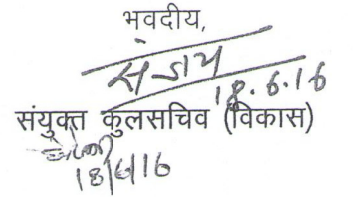 भवदीय,
संजय
18.6.16
संयुक्त कुलसचिव (विकास)
18/6/16